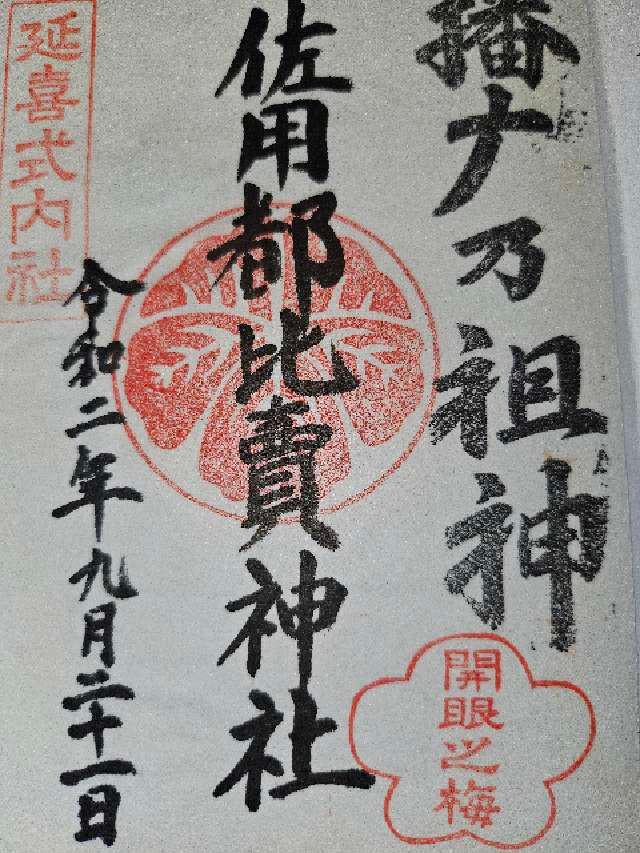 播ナ乃祖神
佐用都比賣神社
令和二年九月二十一日
延喜式内社
開眼之梅